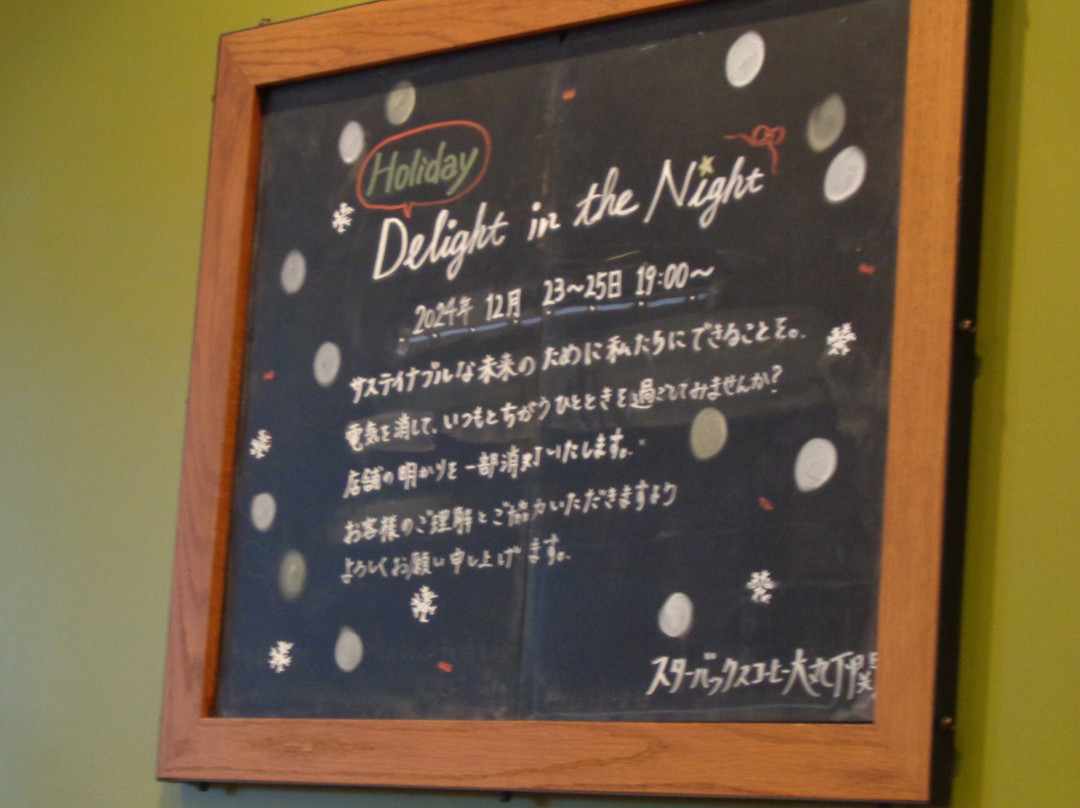 Holiday
Delight in the Night
2024年 12月 23〜25日 19:00〜
サステイナブルな未来のために私たちにできることを。
電気を消して、いつもとちがうひとときを過ごしてみませんか?
店舗の明かりを一部消灯いたします。
お客様のご理解とご協力いただきますより
よろしくお願い申し上げます。
スターバックスコーヒー大丸下関店